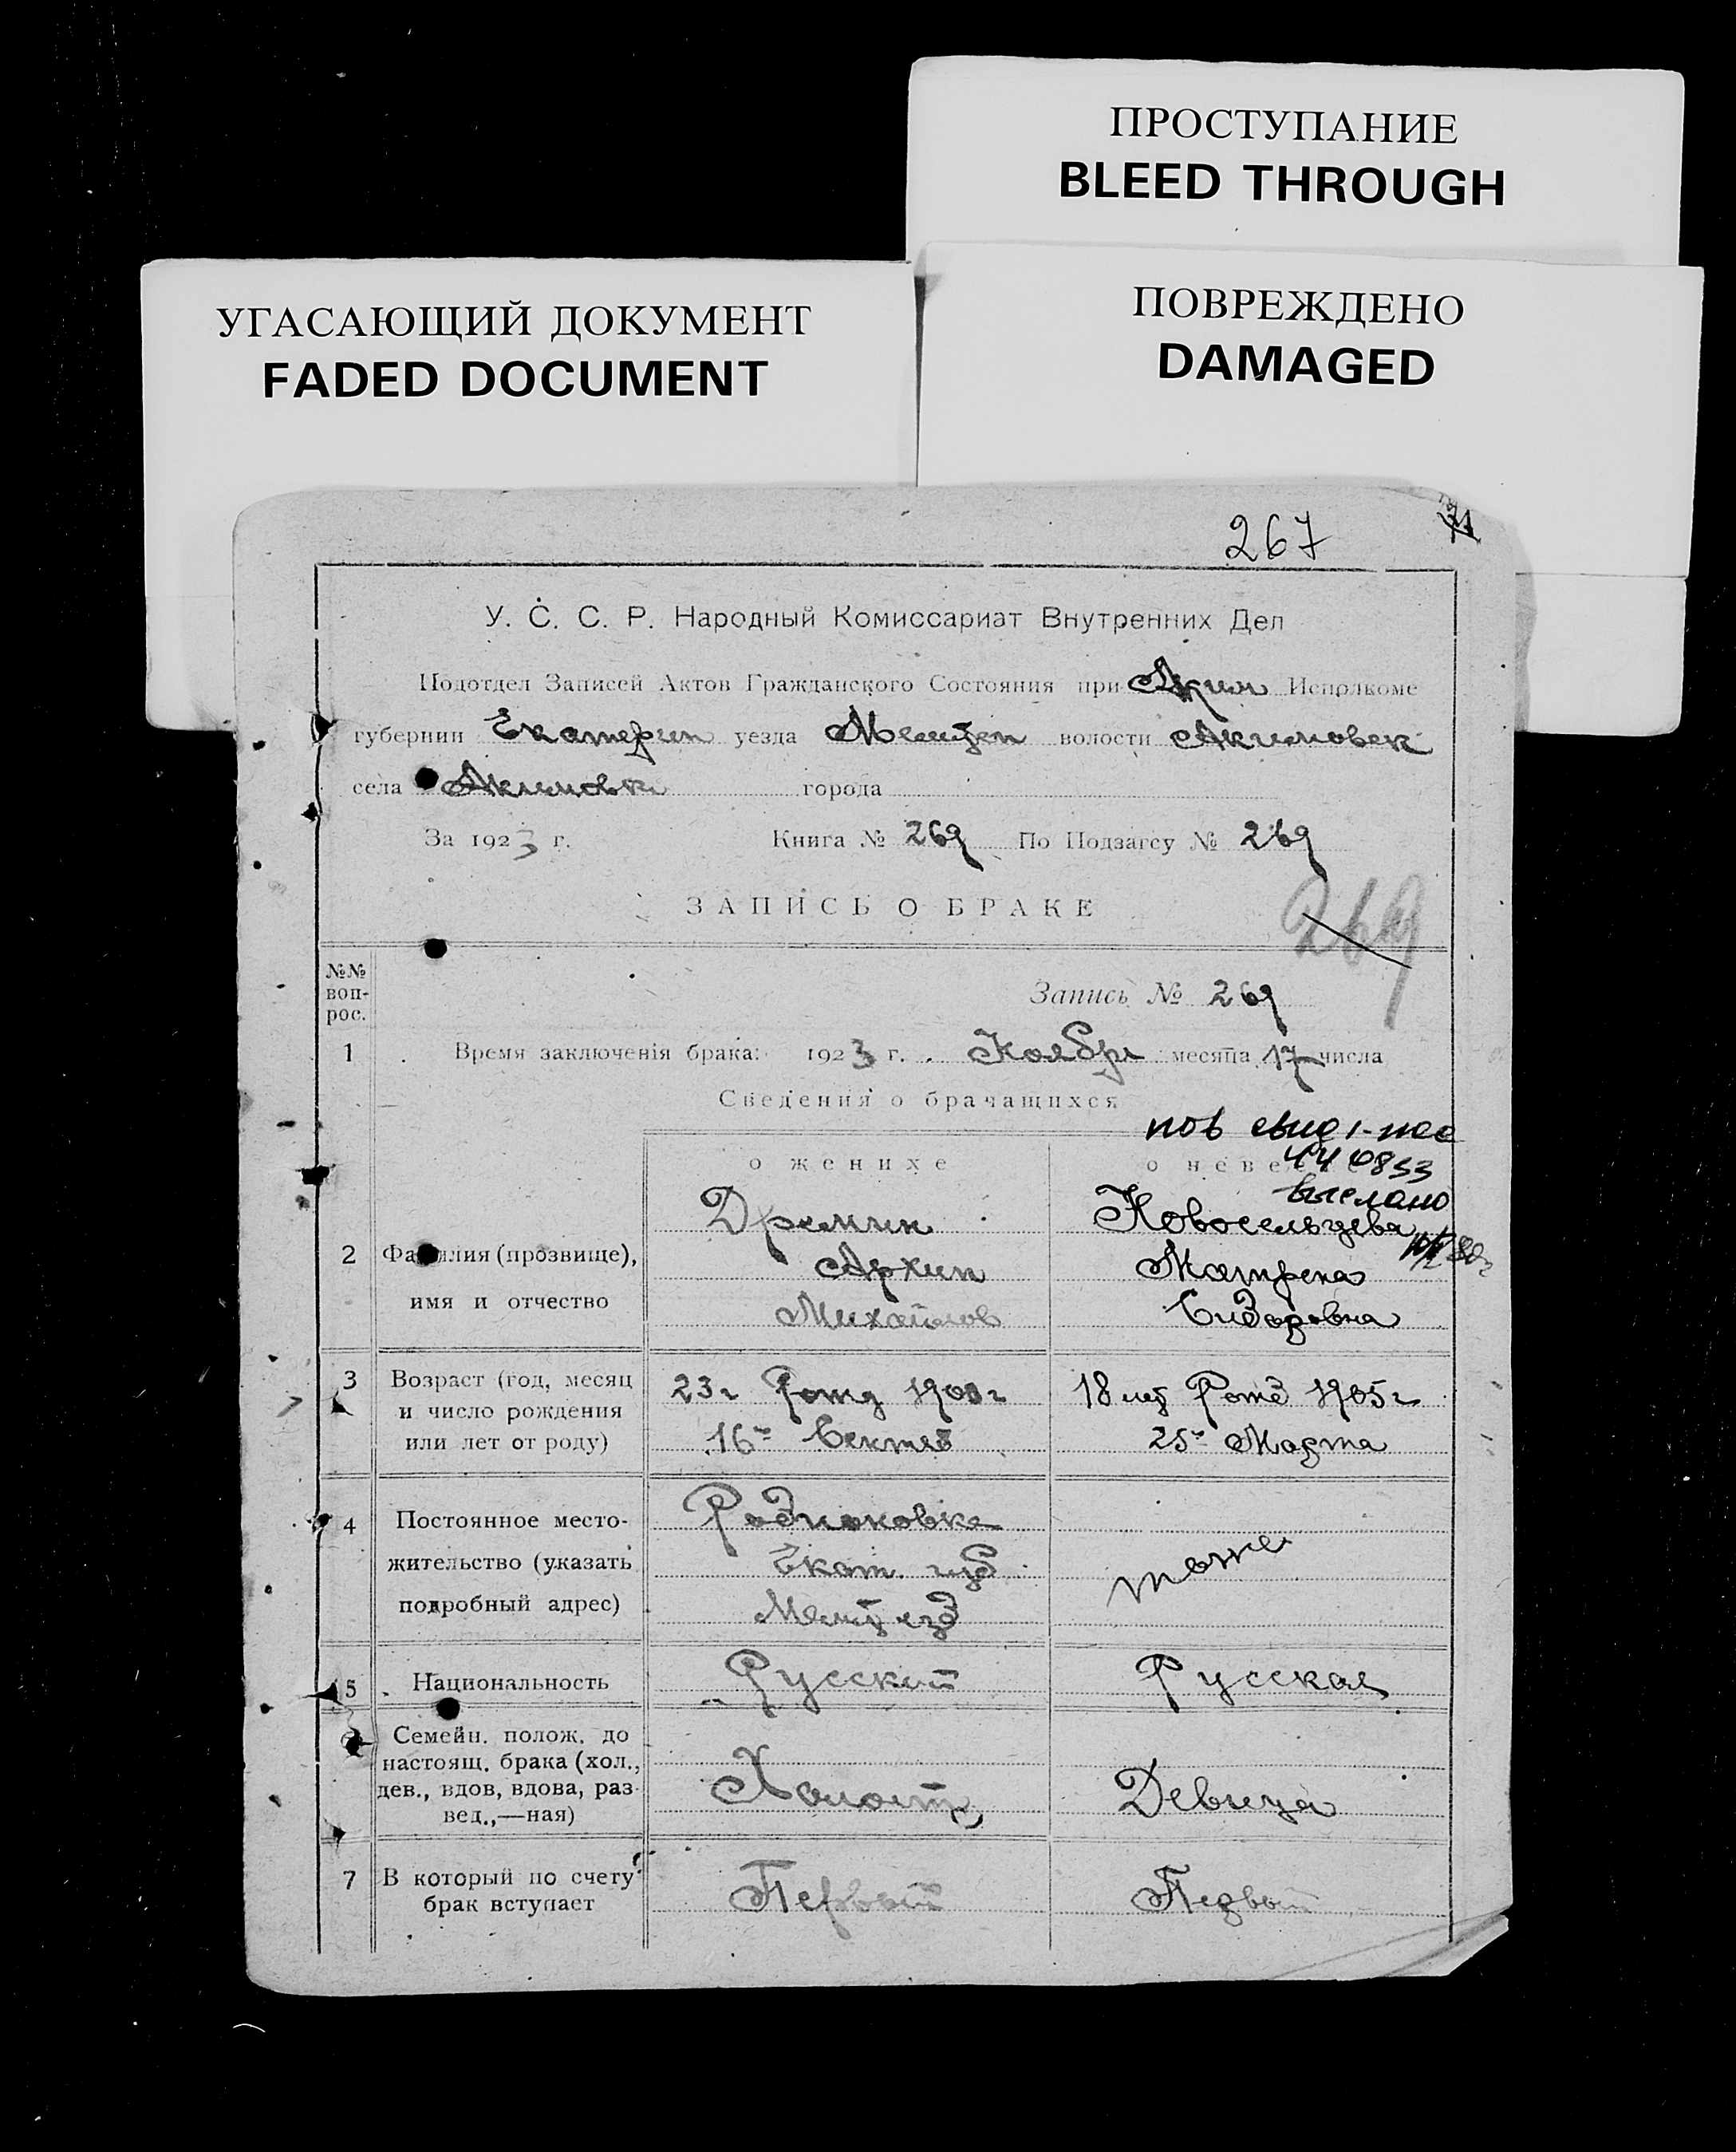 ПРОСТУПАНИЕ
BLEED THROUGH
УГАСАЮЩИЙ ДОКУМЕНТ
FADED DOCUMENT
ПОВРЕЖДЕНО
DAMAGED
267
У. С. С. Р. Народный Комиссариат Внутренних Дел
Подотдел Записей Актов Гражданского Состояния при Аким Исполкоме
губернии Екатерин уезда Мелитоп волости Акимовск
села Акимовка города
За 1923 г. Книга № 269 По Подзагсу № 269
ЗАПИСЬ О БРАКЕ
269
№№
воп-
рос.
Запись № 269
1 Время заключенія брака: 1923 г. Ноября месяца 17 числа
Сведения о брачащихся
пов свид 1-жс
440853
выслано
о женихе о невесте
2 Фамилия (прозвище),
имя и отчество
Дремин
Архип
Михайлов
Новосельцева
Матрена
Сидоровна
3 Возраст (год, месяц
и число рождения
или лет от роду)
23 г Рожд 1900 г
16го Сентяб
18 лет Рожд 1905 г
25го Марта
4 Постоянное место-
жительство (указать
подробный адрес)
Родионовка
Екат. губ
Мелит уезд
тоже
5 Национальность
Русский
Русская
Семейн. полож. до
настоящ. брака (хол.,
дев., вдов, вдова, раз-
вед.,—ная)
Холост
Девица
7 В который по счету
брак вступает
Первый
Первый